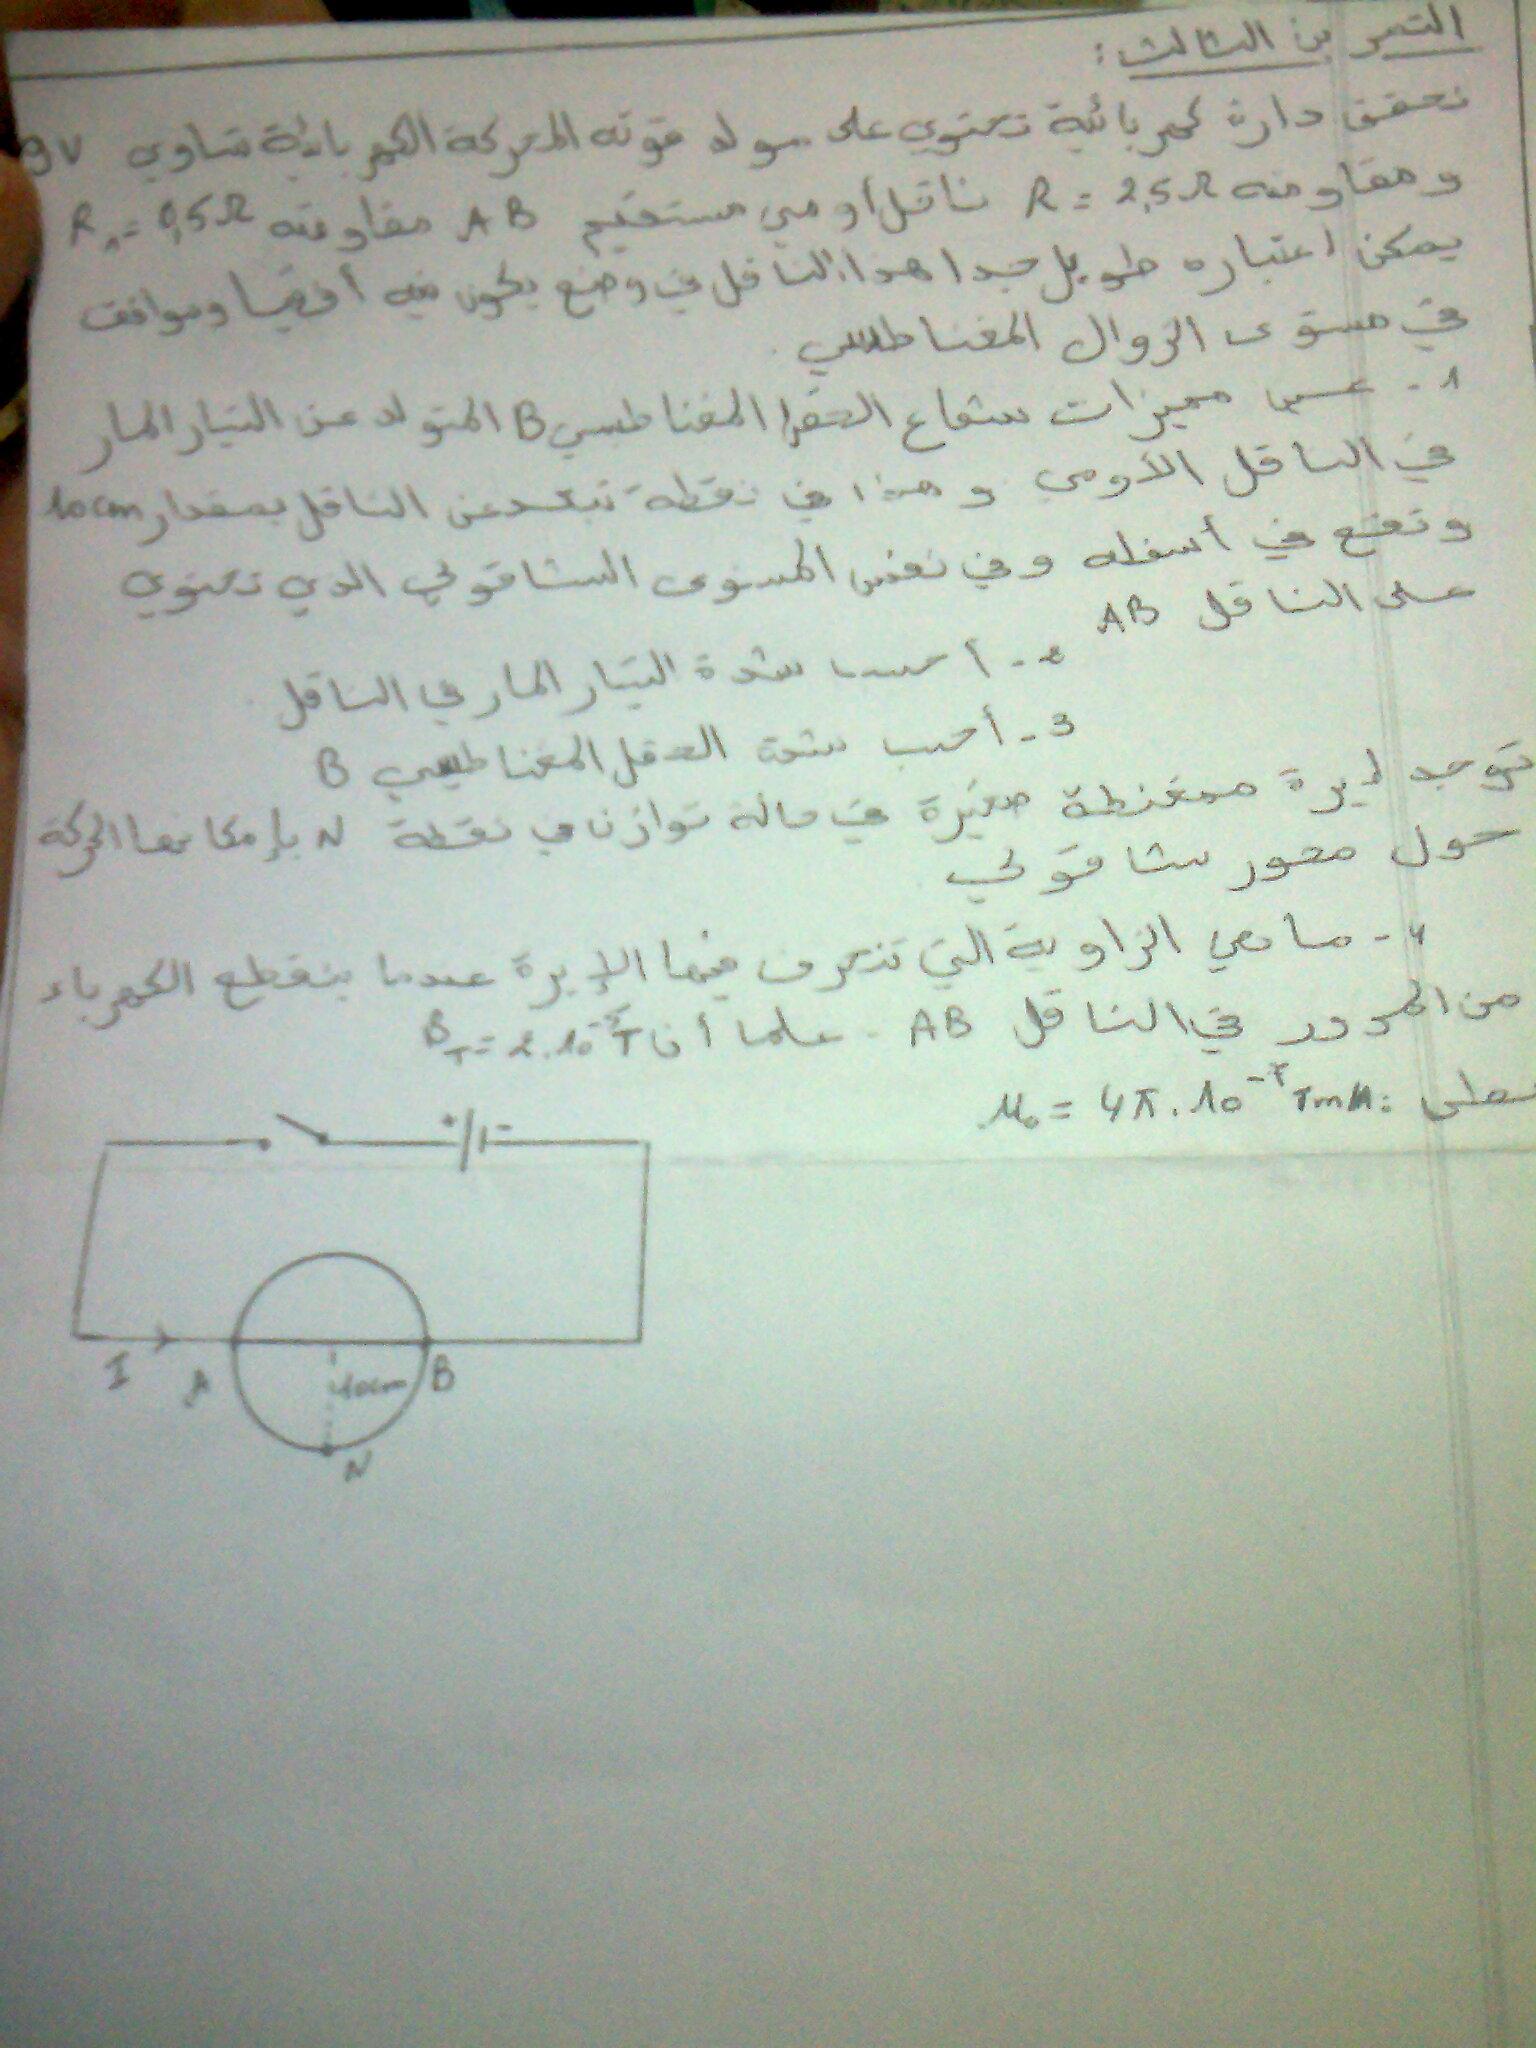 التمرين الثالث:
نحقق دارة كهربائية تحتوي على مولد قوته المحركة الكهربائية تساوي 9V
ومقاومته R = 2,5Ω ناقل أومي مستقيم AB مقاومته R₁ = 0,5Ω
يمكن اعتباره طويل جدا هذا الناقل في وضع يكون فيه أفقيا وموافق
في مستوى الزوال المغناطيسي.
1 - عين مميزات شعاع الحقل المغناطيسي B المتولد عن التيار المار
في الناقل الأومي وهذا في نقطة تبعد عن الناقل بمقدار 10cm
وتقع في أسفله وفي نفس المستوى الشاقولي الذي تحتوي
على الناقل AB
2 - أحسب شدة التيار المار في الناقل.
3 - أحسب شدة الحقل المغناطيسي B
توجد إبرة ممغنطة صغيرة في حالة توازن في نقطة N بإمكانها الحركة
حول محور شاقولي
4 - ماهي الزاوية التي تنحرف فيها الإبرة عندما ينقطع الكهرباء
من المرور في الناقل AB. علما أن B_T = 2.10⁻⁵T
يعطى: μ₀ = 4π.10⁻⁷
+ -
I A 10cm B
N